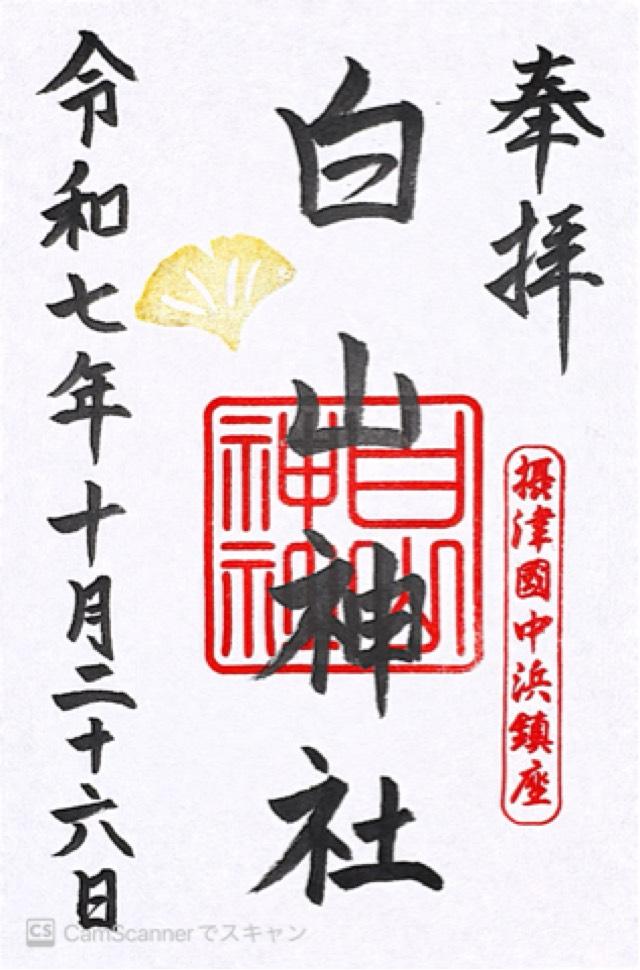 奉拝
摂津國中浜鎮座
白山神社
白山神社
令和七年十月二十六日
CS CamScannerでスキャン